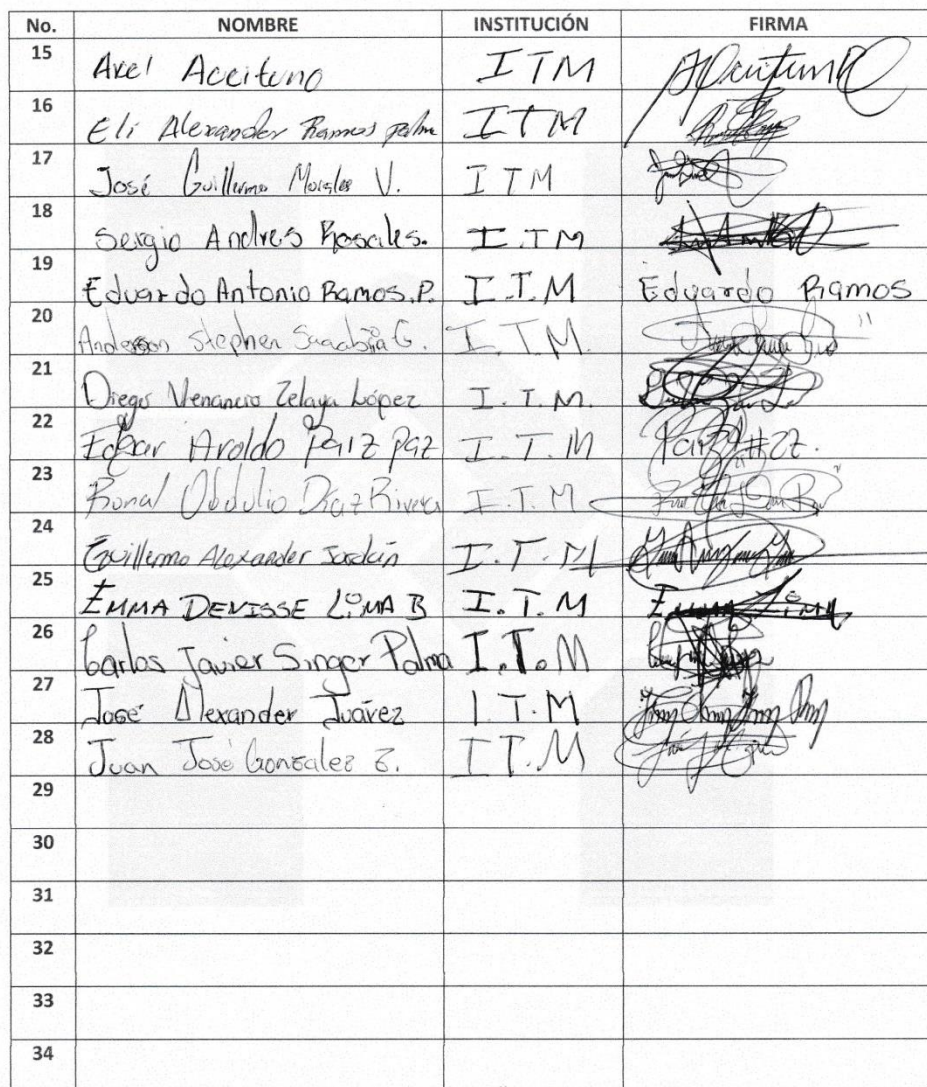 No. NOMBRE INSTITUCIÓN FIRMA
15 Axel Aceituno ITM
16 Eli Alexander Ramos palma ITM
17 José Guillermo Morales V. ITM
18 Sergio Andres Rosales. I.TM
19 Eduardo Antonio Ramos.P. I.T.M Eduardo Ramos
20 Anderson Stephen G. I.T.M.
21 Diego Venancio Zelaya López I.T.M.
22 Edgar Aroldo Paiz Paz I.T.M Paiz #22.
23 Ronal Obdulio Díaz Rivera I.T.M
24 Guillermo Alexander Jordán I.T.M
25 EMMA DENISSE LIMA B I.T.M Emma Lima
26 Carlos Javier Singer Palma I.T.M
27 José Alexander Juárez I.T.M
28 Juan José Gonzalez Z. I T.M
29
30
31
32
33
34